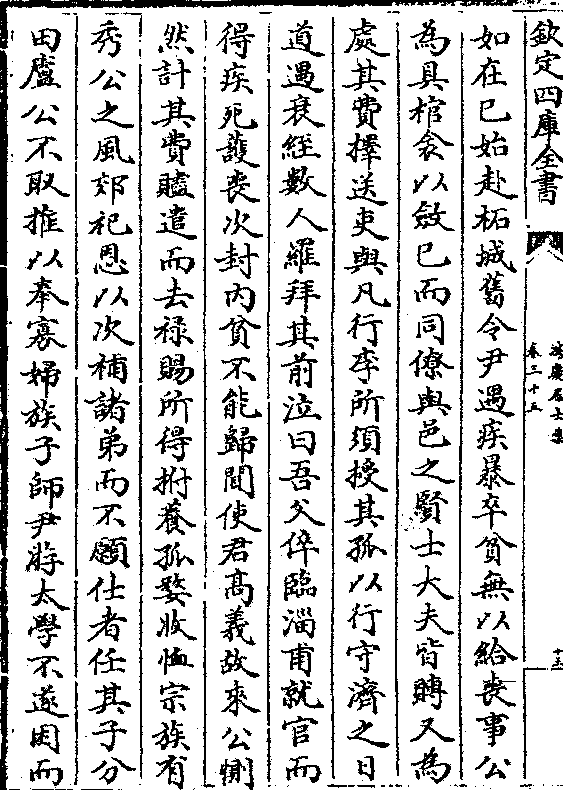 欽定四庫全書
鴻慶居士集
卷三十五
十五
如在已始赴柘城舊令尹遇疾暴卒貧無以給喪事公
為具棺衾以斂已而同僚與邑之賢士大夫皆賻又為
處其費擇送吏與凡行李所須授其孤以行守濟之日
道遇衰絰數人羅拜其前泣曰吾父倅臨淄甫就官而
得疾死護喪次封内貧不能歸聞使君髙義故來公惻
然計其費贐遣而去禄賜所得拊養孤嫠收恤宗族有
秀公之風郊祀恩以次補諸弟而不願仕者任其子分
田廬公不取推以奉寡婦族子師尹游太學不遂因而